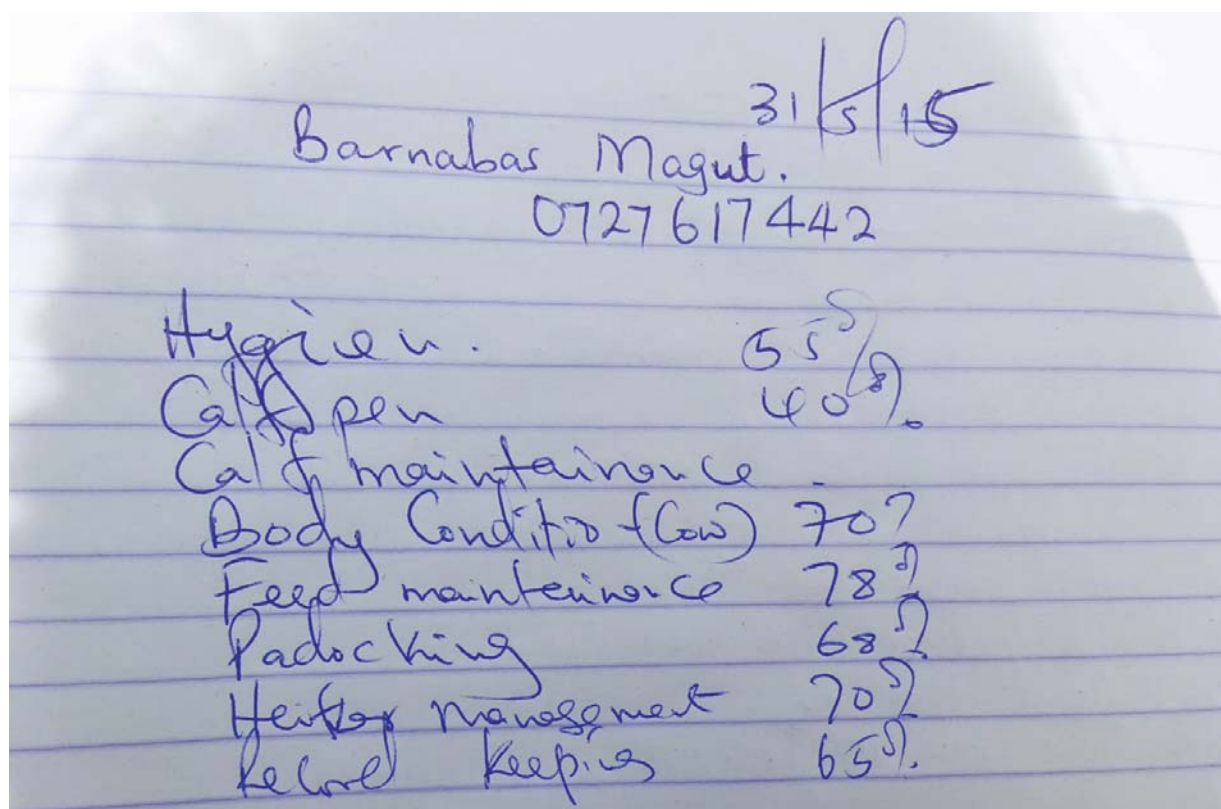 31/5/15
Barnabas Magut.
0727617442
Hygien. 55%
Calf pen 40%.
Calf maintainance -
Body Conditio (Cow) 70%
Feed maintainance 78%
Padocking 68%
Heifer management 70%
Record Keeping 65%.